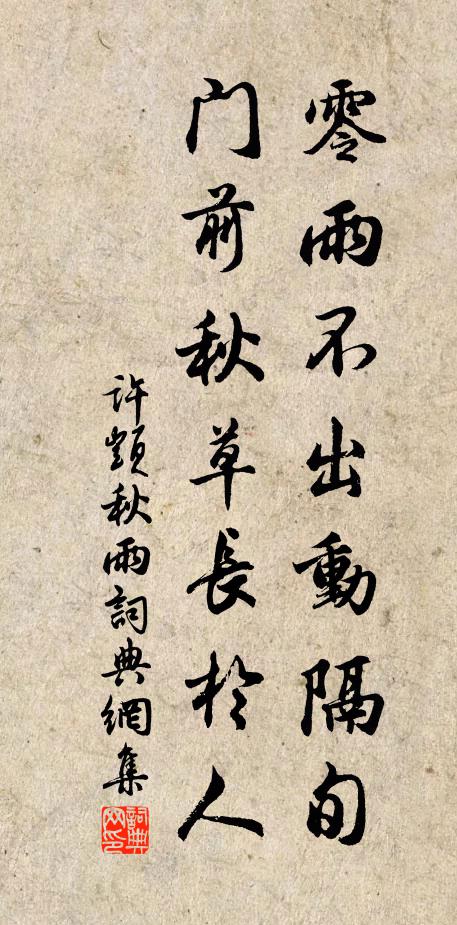 零雨不出動隔旬
門前秋草長於人
許顗秋雨詞典網集
詞典網印